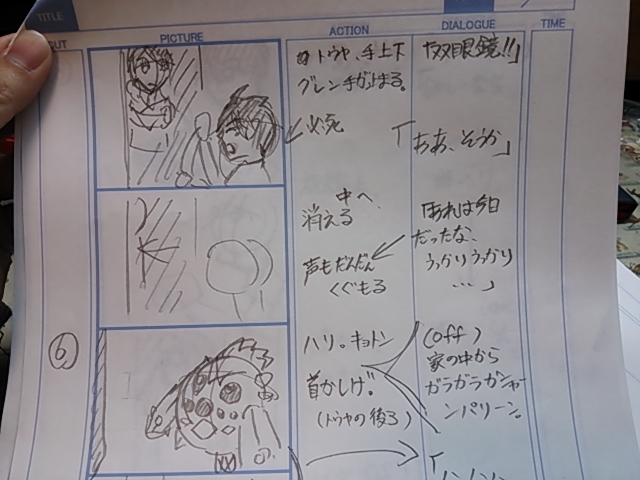 TITLE
CUT
PICTURE
ACTION
DIALOGUE
TIME
トウヤ、手上下
グレン手が止まる。
必死
「双眼鏡!!」
「ああ、そうか」
中へ、
消える
声もだんだん
くぐもる
「あれは今日
だったな、
うっかりうっかり
…」
6
ハリ。キョトン
首かしげ。
(トウヤの後ろ)
(off)
家の中から
ガラガラガシャー
ンパリーン。